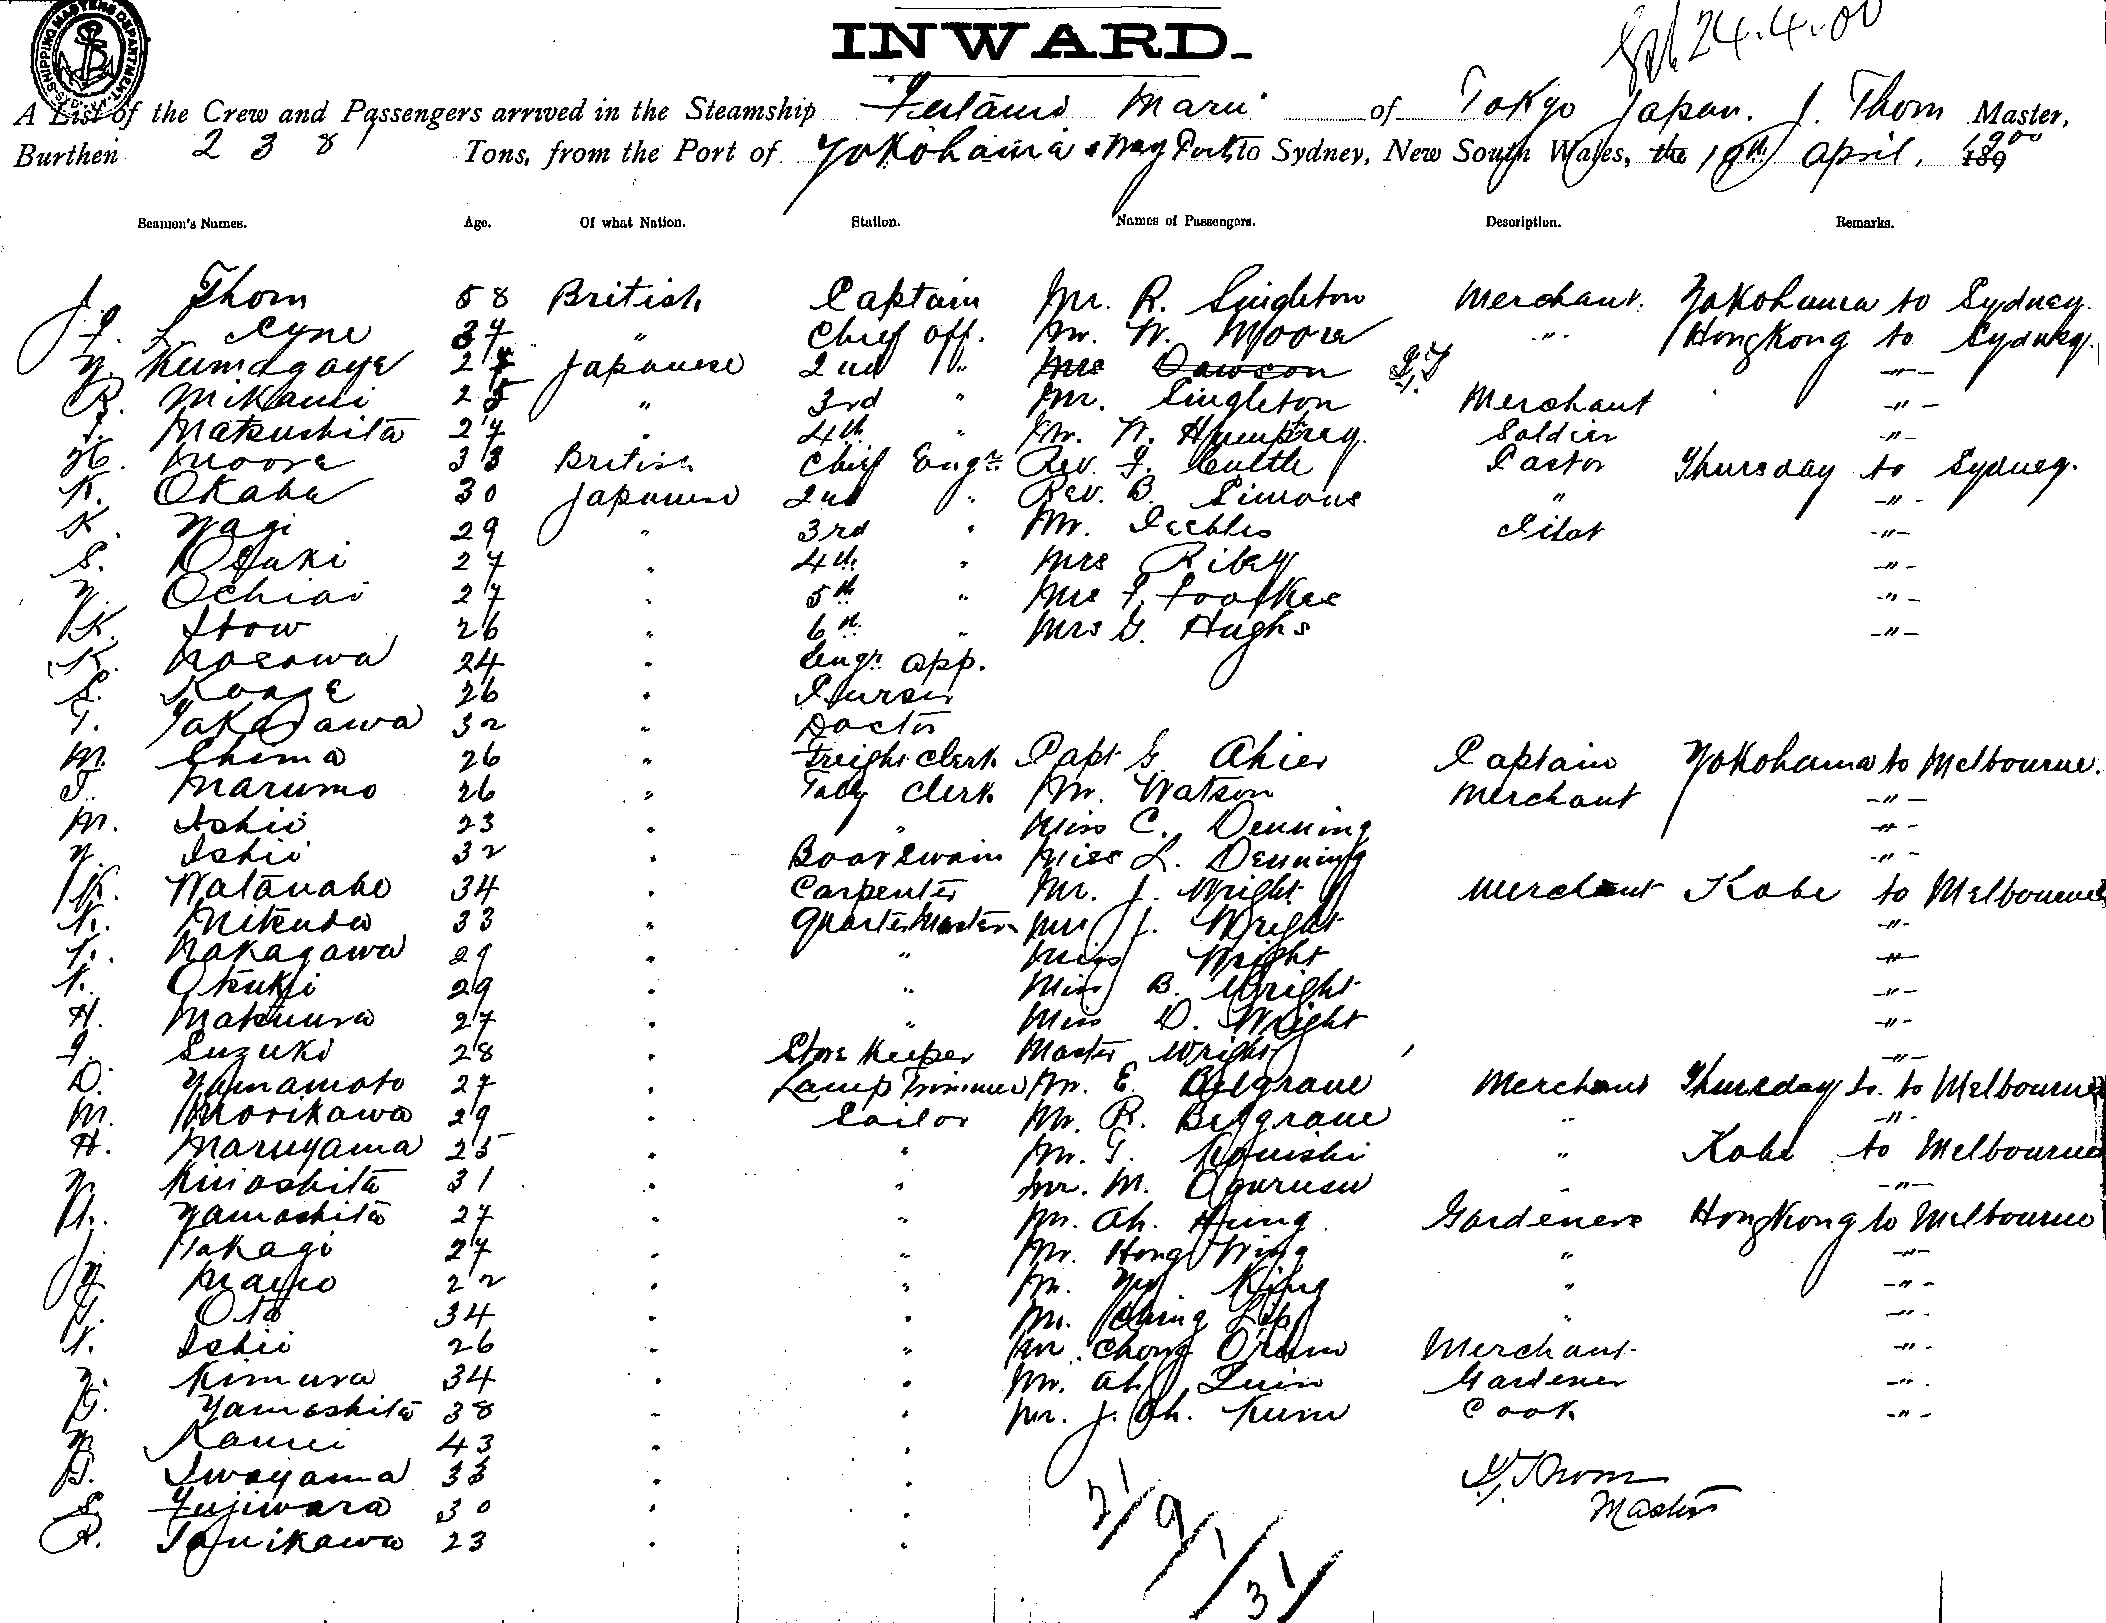 INWARD.
24.4.00
A List of the Crew and Passengers arrived in the Steamship Futami Maru of Tokyo Japan. J. Thom Master,
Burthen 2381 Tons, from the Port of Yokohama & Way Ports to Sydney, New South Wales, the 19th April, 1900
Seamen's Names. Age. Of what Nation. Station. Names of Passengers. Description. Remarks.
J. Thom 58 British Captain Mr. R. Singleton Merchant. Yokohama to Sydney.
L. Cyne 37 " Chief off. Mr. W. Moore " Hongkong to Sydney.
Y. Kumagaye 27 Japanese 2nd " Mrs Dawson J.T. -"-
R. Mikami 25 " 3rd " Mr. Singleton Merchant -"-
Matsushita 27 " 4th " Mr. W. Humphrey. Soldier -"-
H. Moore 33 British Chief Engr. Rev. J. Pastor Thursday to Sydney.
K. Okabe 30 Japanese 2nd " Rev. B. Simons " -"-
K. Yagi 29 " 3rd " Mr. Peebles Pilot -"-
S. Otuki 27 " 4th " Mrs Riley -"-
Y. Ochiai 27 " 5th " Mrs F. Foulkes -"-
K. Itow 26 " 6th " Mrs G. Hughs -"-
K. Nosawa 24 " Engr. app.
S. Konge 26 " Purser
T. Takasawa 32 " Doctor
M. Shima 26 " Freight clerk Capt G. Ahier Captain Yokohama to Melbourne.
T. Marumo 26 " Taly clerk Mr. Watson Merchant -"-
M. Ishii 23 " " Miss C. Denning -"-
Y. Ishii 32 " Boatswain Miss L. Denning -"-
K. Watanabe 34 " Carpenter Mr. J. Wright Merchant Kobe to Melbourne
Mitsuda 33 " Quartermaster Mrs J. Wright -"-
Nakagawa 29 " " Miss Wright -"-
Otsuki 29 " " Miss B. Wright -"-
H. Matsuura 27 " " Miss D. Wright -"-
Suzuki 28 " Store Keeper Master Wright -"-
D. Yamamoto 27 " Lamp Trimmer Mr. E. Belgrave Merchant Thursday Is. to Melbourne
M. Morikawa 29 " Sailor Mr. R. Belgrave " -"-
H. Maruyama 25 " " Mr. T. Konishi " Kobe to Melbourne
Y. Kinoshita 31 " " Mr. M. Ogurusu " -"-
Yamashita 27 " " Mr. Ah. Hung Gardeners Hongkong to Melbourne
Takagi 27 " " Mr. Hong Wing " -"-
Y. 22 " " Mr. King " -"-
Ota 34 " " Mr. " -"-
Ishii 26 " " Mr. Chong Merchant -"-
Y. Kimura 34 " " Mr. Ah Gardener -"-
Yamashita 38 " " Mr. J. Ah. Kum Cook -"-
Y. Kanui 43 " "
Iwayama 33 " "
S. Fujiwara 30 " "
R. Tanikawa 23 " "
J. Thom
Master